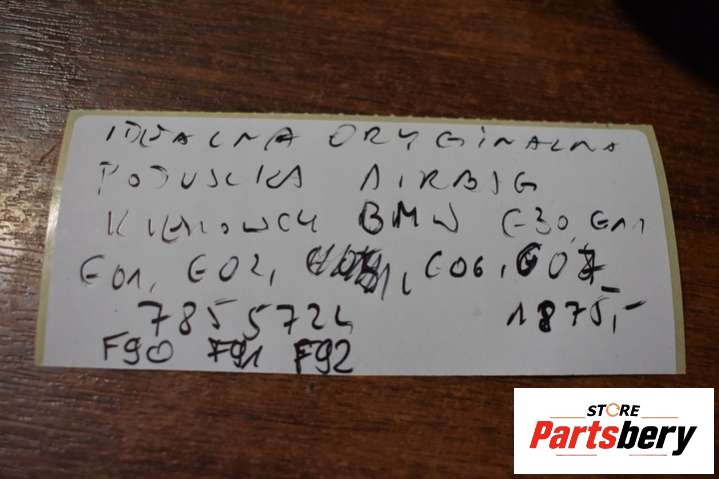 IDEALNA ORYGINALNA
PODUSZKA AIRBAG
KIEROWCY BMW G30, G11
G01, G02, G06, G07
7855724 1875,-
F90 F91 F92
STORE
Partsbery